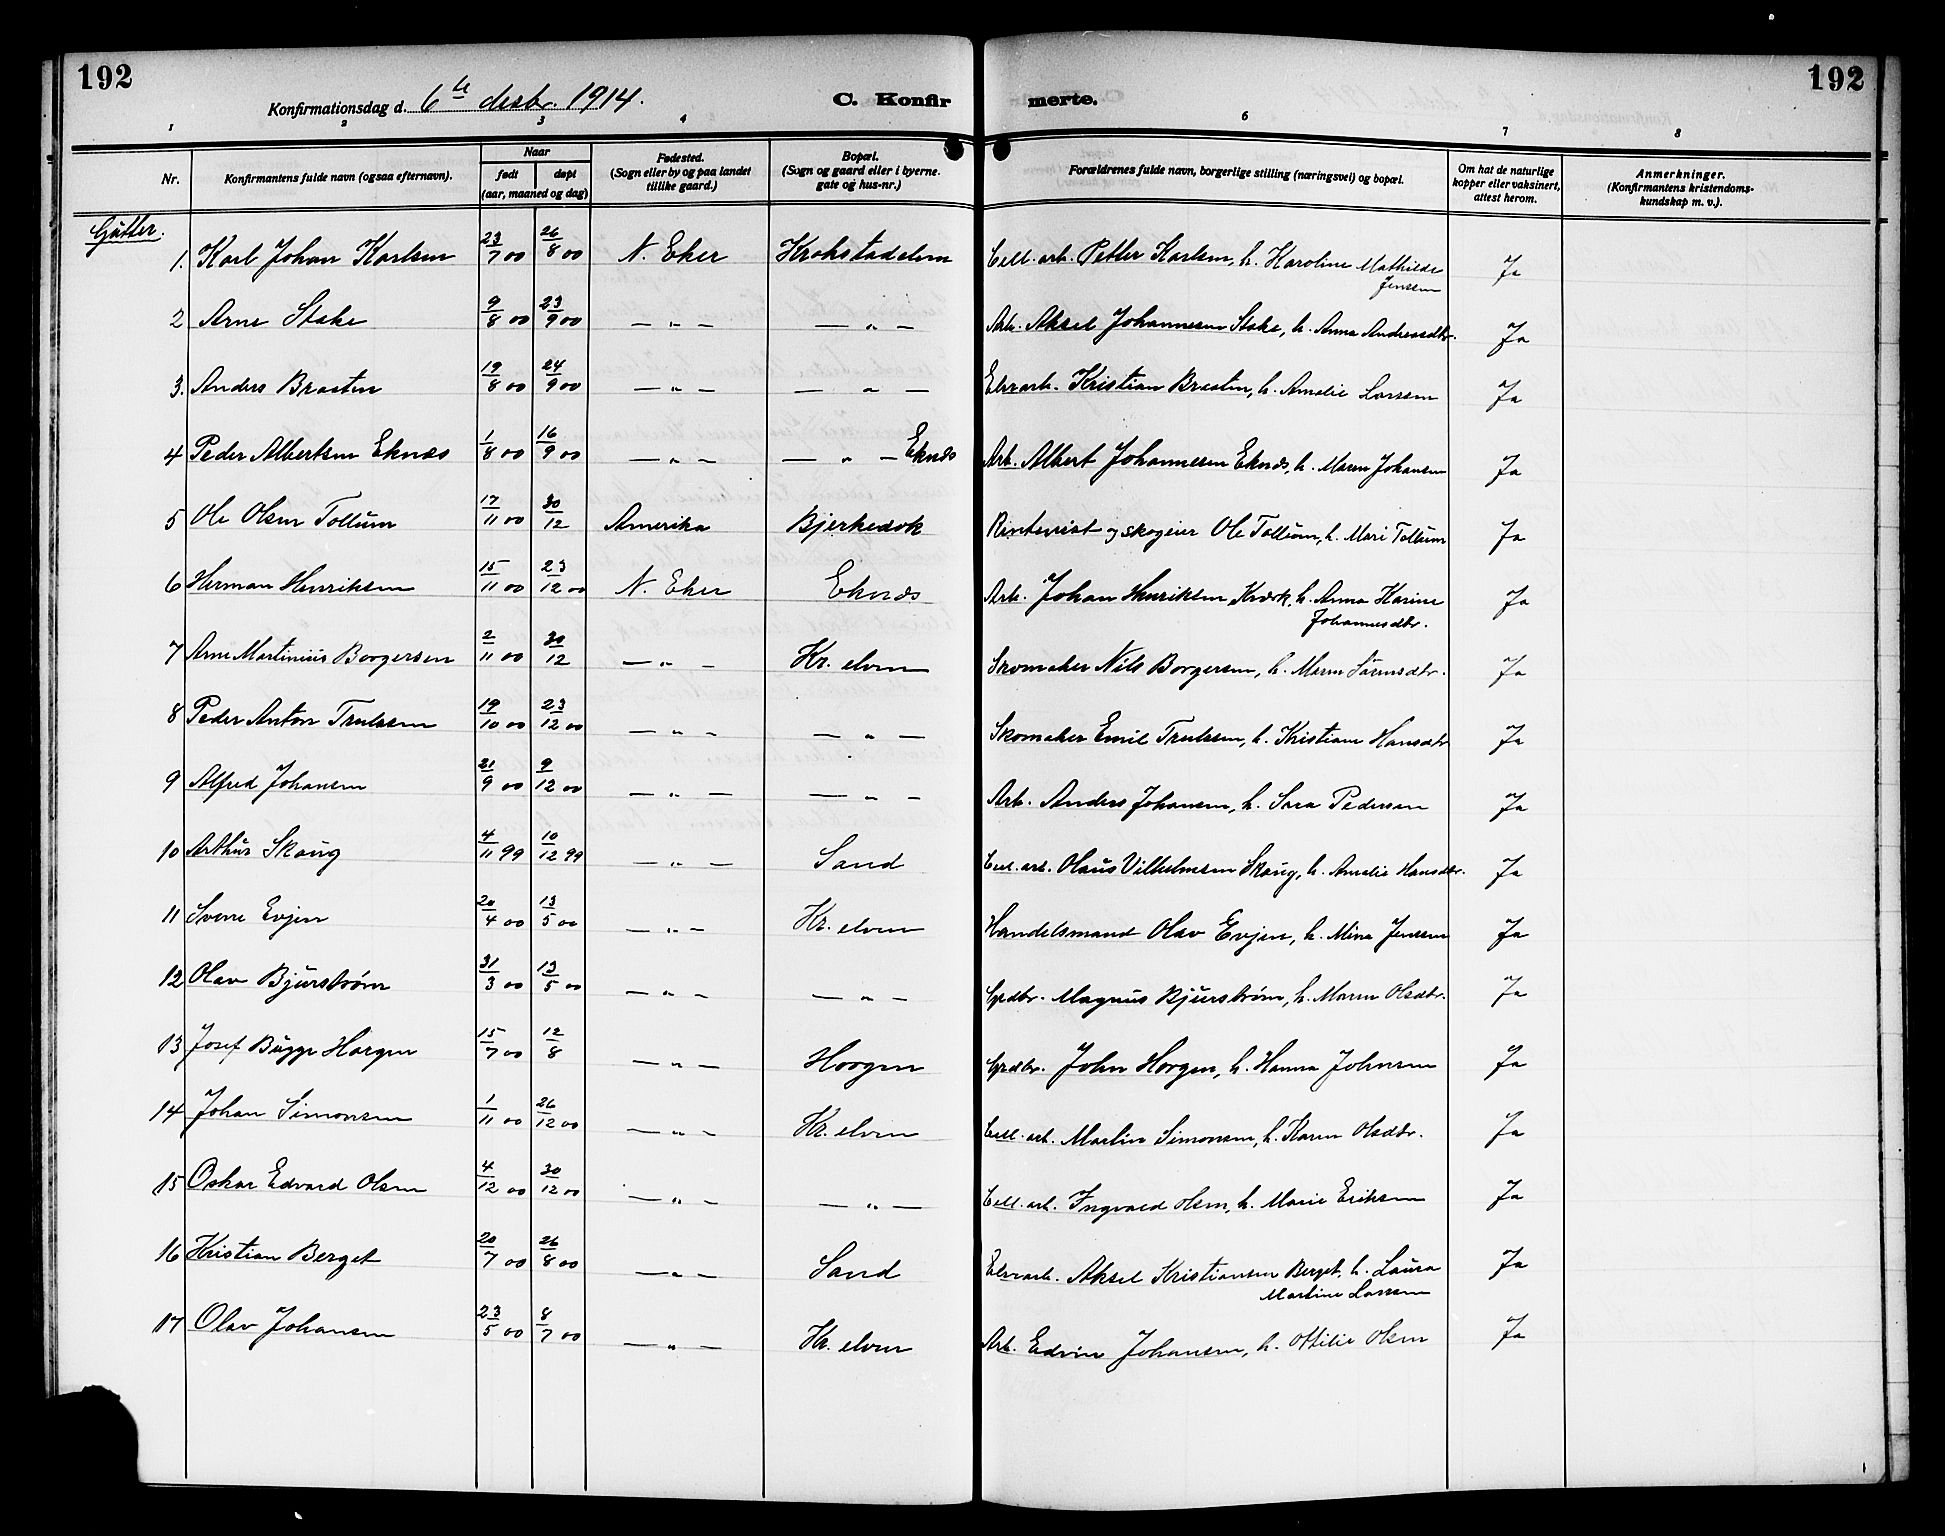 192
Konfirmationsdag d. 6te desbr. 1914.
C. Konfir merte.
192
1 2 3 4 6 7 8
Nr.
Konfirmantens fulde navn (ogsaa efternavn).
Naar
født døpt
(aar, maaned og dag)
Fødested.
(Sogn eller by og paa landet
tillike gaard.)
Bopæl.
(Sogn og gaard eller i byerne.
gate og hus-nr.)
Forældrenes fulde navn, borgerlige stilling (næringsvei) og bopæl.
Om hat de naturlige
kopper eller vaksinert,
attest herom.
Anmerkninger.
(Konfirmantens kristendoms-
kundskap m. v.).
Gutter.
1. Karl Johan Karlsen 23/7 00 26/8 00 N. Eker Krokstadelven Cell. arb. Petter Karlsen, h. Karoline Mathilde Ja
Jensen
2 Arne Stake 9/8 00 23/9 00 — „ — — „ — Arb. Aksel Johannesen Stake, h. Anna Andreasdtr. Ja
3. Anders Braaten 19/8 00 24/9 00 — „ — — „ — Elvearb. Kristian Braaten, h. Amalie Larsen Ja
4 Peder Albertsen Eknes 1/8 00 16/9 00 — „ — — „ — Eknes Arb. Albert Johannesen Eknes, h. Maren Johansen Ja
5 Ole Olsen Tollum 17/11 00 30/12 Amerika Bjerkedok Rentenist og skogeier Ole Tollum, h. Mari Tollum Ja
6 Herman Henriksen 15/11 00 23/12 00 N. Eker Eknes Arb. Johan Henriksen Kværk, h. Anna Karine Ja
Johannesdtr.
7 Arne Martinius Borgersen 2/11 00 30/12 — „ — Kr. elven Skomaker Nils Borgersen, h. Maren Sørensdtr. Ja
8 Peder Anton Trulssen 19/10 00 23/12 00 — „ — — „ — Skomaker Emil Trulssen, h. Kristiane Hansdtr Ja
9 Alfred Johansen 21/9 00 9/12 00 — „ — — „ — Arb. Anders Johansen, h. Sara Pedersen Ja
10 Arthur Skaug 4/11 99 10/12 99 — „ — Sand Cell. arb. Olaus Vilhelmsen Skaug, h. Amalie Hansdtr. Ja
11 Sverre Evjen 20/4 00 13/5 00 — „ — Kr. elven Handelsmand Olav Evjen, h. Mina Jensen Ja
12 Olav Bjurstrøm 31/3 00 13/5 00 — „ — — „ — Grdbr. Magnus Bjurstrøm, h. Maren Olsdtr. Ja
13 Josef Bugge Horgen 15/7 00 12/8 — „ — Horgen Grdbr. John Horgen, h. Hanna Johnsen Ja
14 Johan Simonsen 1/11 00 26/12 00 — „ — Kr. elven Cell. arb. Martin Simonsen, h. Karen Olsdtr. Ja
15 Oskar Edvard Olsen 4/12 00 30/12 00 — „ — — „ — Cell. arb. Ingvald Olsen, h. Marie Eriksen Ja
16 Kristian Berget 20/7 00 26/8 00 — „ — Sand Elvearb. Aksel Kristiansen Berget, h. Laura Ja
Martine Larsen
17 Olav Johansen 23/5 00 8/7 00 — „ — Kr. elven Arb. Edvin Johansen, h. Otilie Olsen Ja